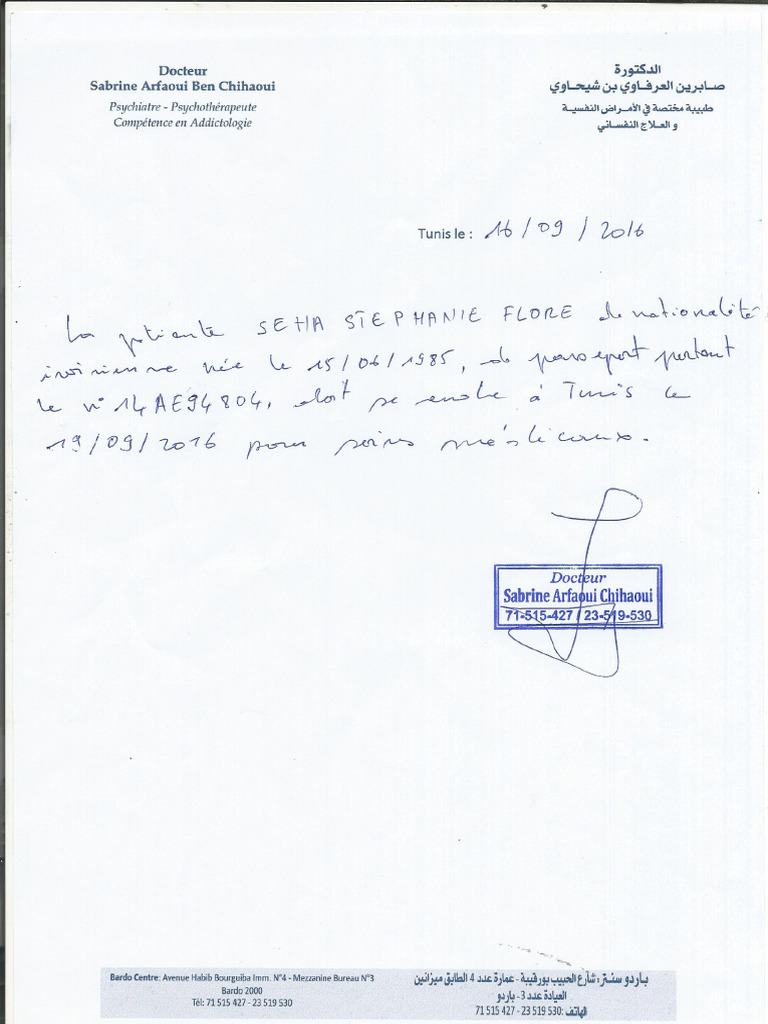 Docteur
Sabrine Arfaoui Ben Chihaoui
Psychiatre - Psychothérapeute
Compétence en Addictologie
الدكتورة
صابرين العرفاوي بن شيحاوي
طبيبة مختصة في الأمراض النفسية
و العلاج النفساني
Tunis le : 16/09/2016
La patiente SEHA STEPHANIE FLORE de nationalité
ivoirienne née le 15/06/1985, de passeport portant
le n° 14AE94804, doit se rendre à Tunis le
19/09/2016 pour soins médicaux.
Docteur
Sabrine Arfaoui Chihaoui
71-515-427 / 23-519-530
Bardo Centre: Avenue Habib Bourguiba Imm. N°4 - Mezzanine Bureau N°3
Bardo 2000
Tél: 71 515 427 - 23 519 530
باردو سنتر: شارع الحبيب بورقيبة - عمارة عدد 4 الطابق ميزانين
العيادة عدد 3 - باردو
الهاتف: 530 519 23 - 427 515 71